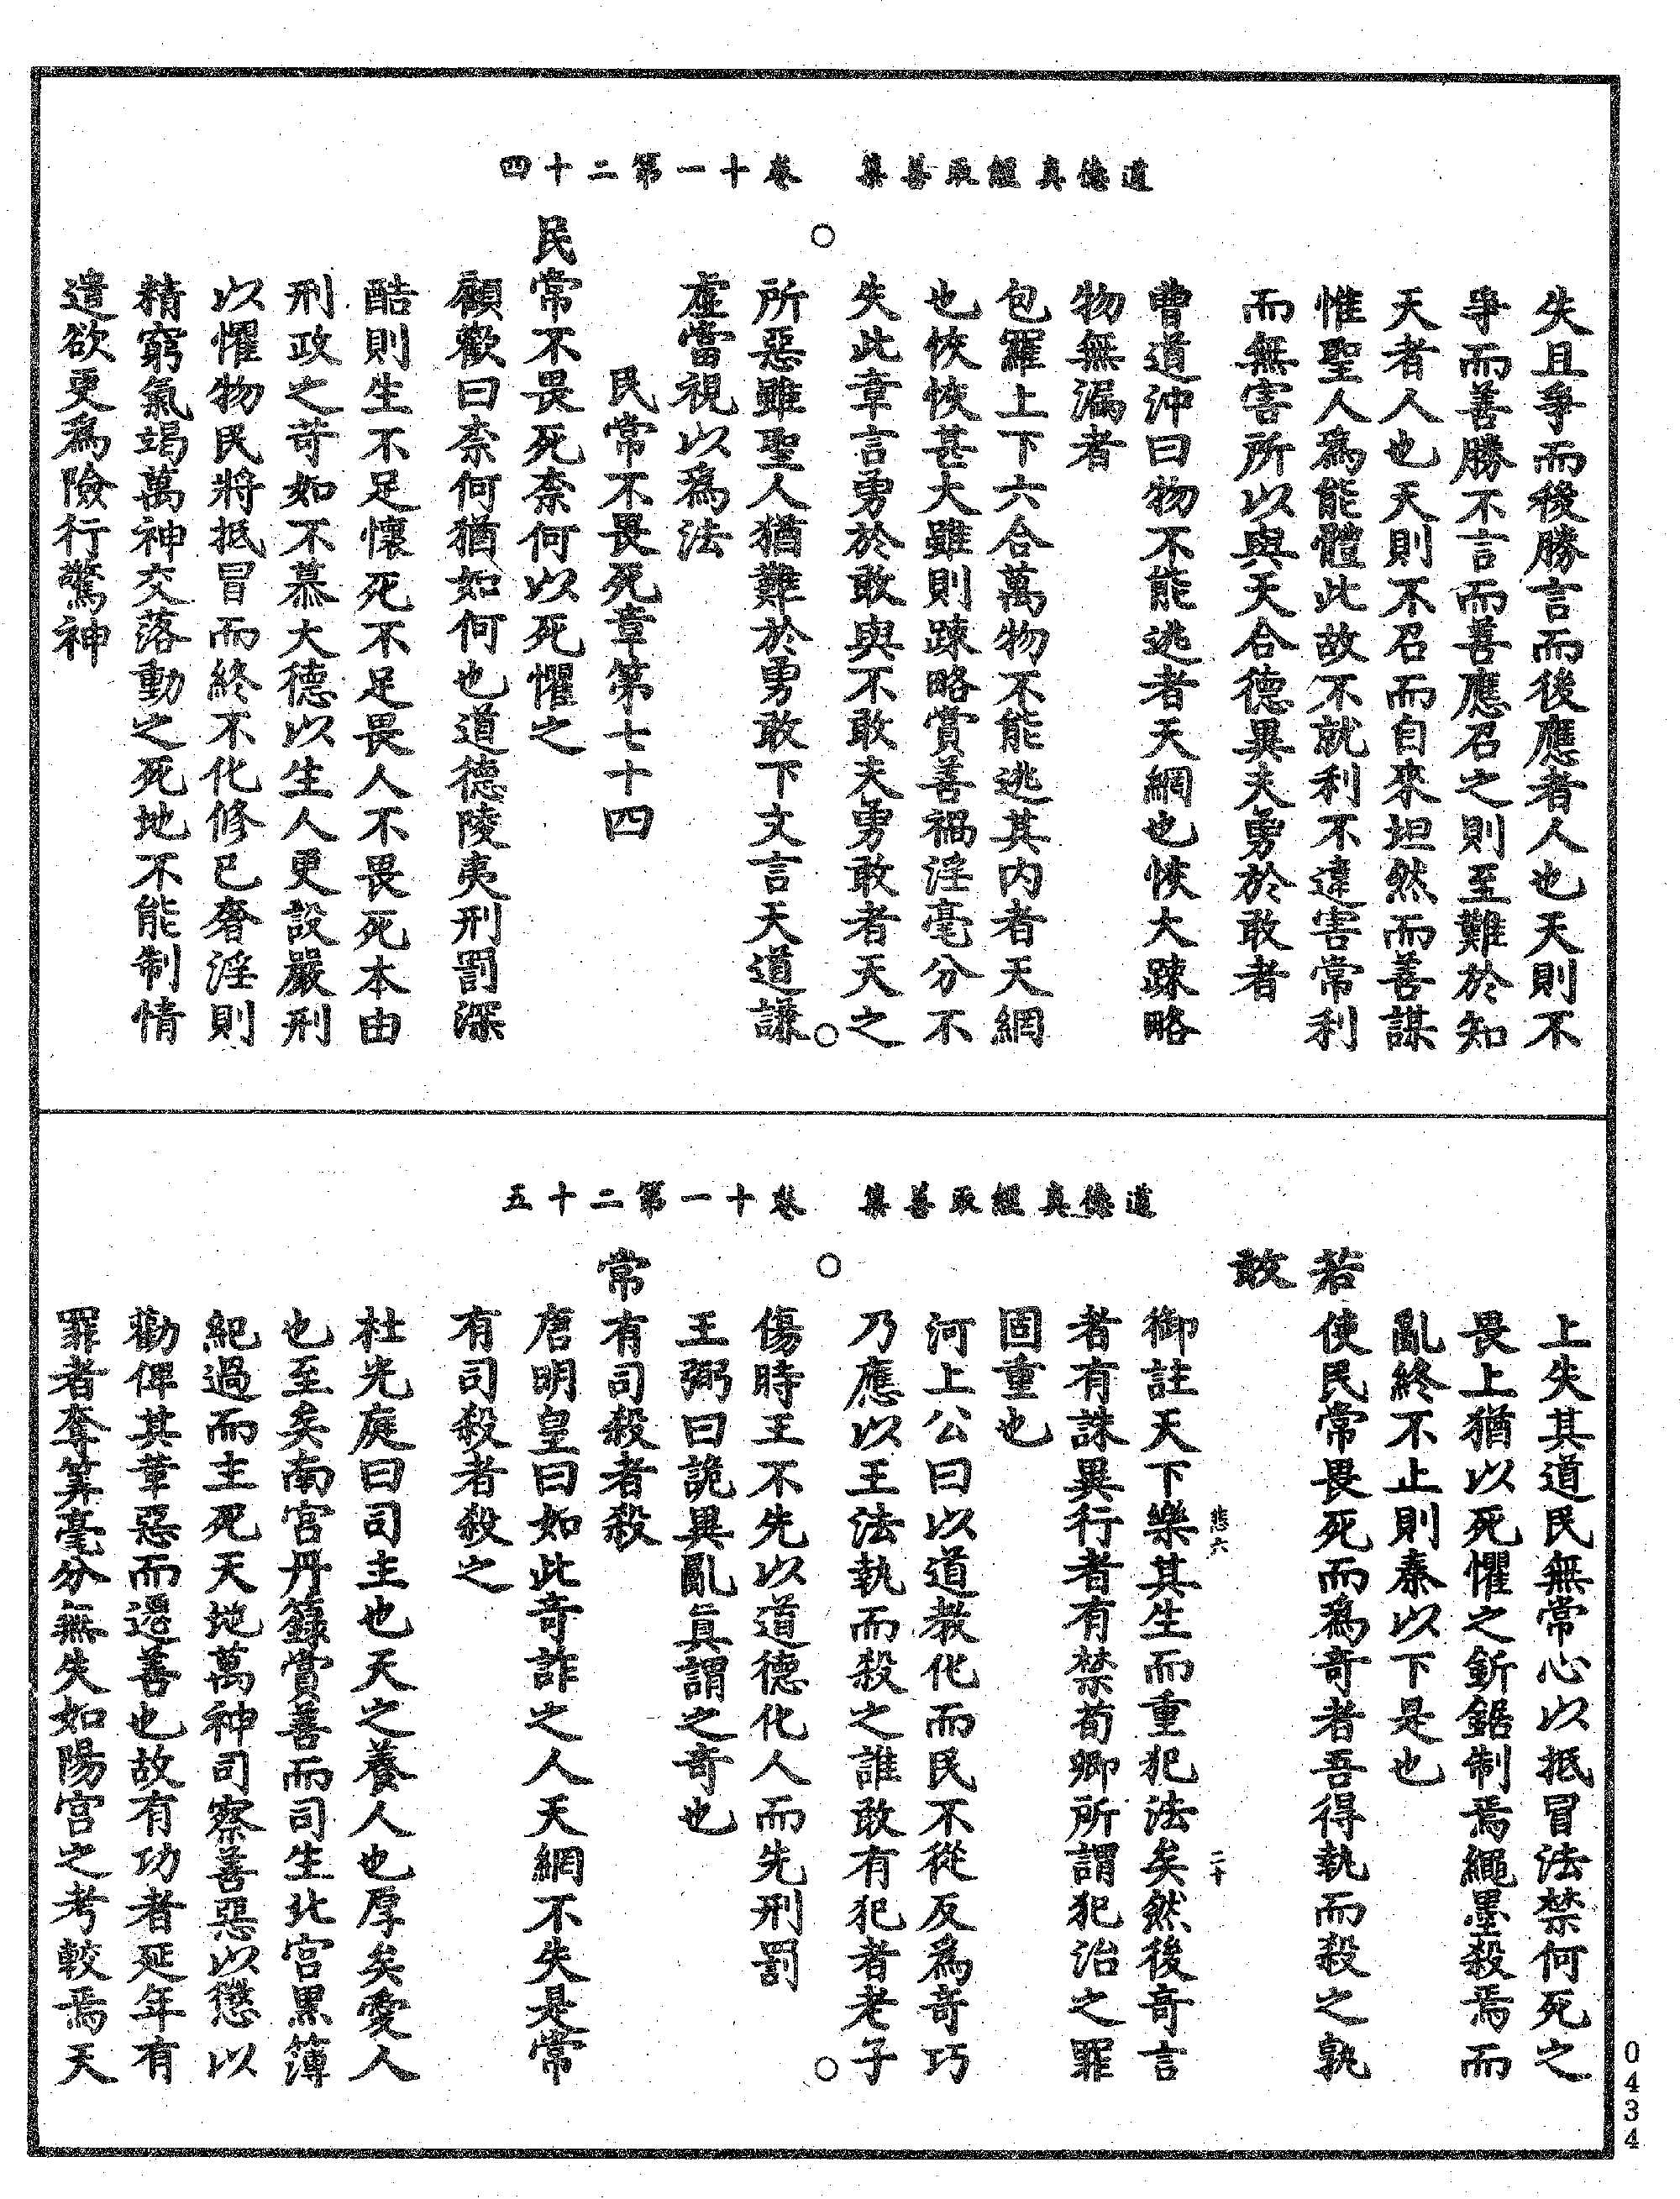 道德真經取善集　卷十一第二十四
失且爭而後勝言而後應者人也天則不
爭而善勝不言而善應召之則至難於知
天者人也天則不召而自來坦然而善謀
惟聖人爲能體此故不就利不違害常利
而無害所以與天合德異夫勇於敢者
曹道沖曰物不能逃者天網也恢大踈略
物無漏者
包羅上下六合萬物不能逃其内者天網
也恢恢甚大雖則踈略賞善禍淫毫分不
失此章言勇於敢與不敢夫勇敢者天之
所惡雖聖人猶難於勇敢下文言天道謙
虚當視以爲法
民常不畏死章第七十四
民常不畏死柰何以死懼之
顧歡曰柰何猶如何也道德陵夷刑罰深
酷則生不足懷死不足畏人不畏死本由
刑政之苛如不慕大德以生人更設嚴刑
以懼物民將抵冒而終不化修已奢淫則
精窮氣竭萬神交落動之死地不能制情
遣欲更爲險行驚神
道德真經取善集　卷十一第二十五
上失其道民無常心以抵冒法禁何死之
畏上猶以死懼之釿鋸制焉繩墨殺焉而
亂終不止則秦以下是也
若使民常畏死而爲奇者吾得執而殺之孰
敢
悲六　二十
御註天下樂其生而重犯法矣然後奇言
者有誅異行者有禁荀卿所謂犯治之罪
固重也
河上公曰以道教化而民不從反爲奇巧
乃應以王法執而殺之誰敢有犯者老子
傷時王不先以道德化人而先刑罰
王弼曰詭異亂眞謂之奇也
常有司殺者殺
唐明皇曰如此奇詐之人天網不失是常
有司殺者殺之
杜光庭曰司主也天之養人也厚矣愛人
也至矣南宫丹籙賞善而司生北宫黑簿
紀過而主死天地萬神司察善惡以懲以
勸俾其革惡而還善也故有功者延年有
罪者奪筭毫分無失如陽宫之考較焉天
0434